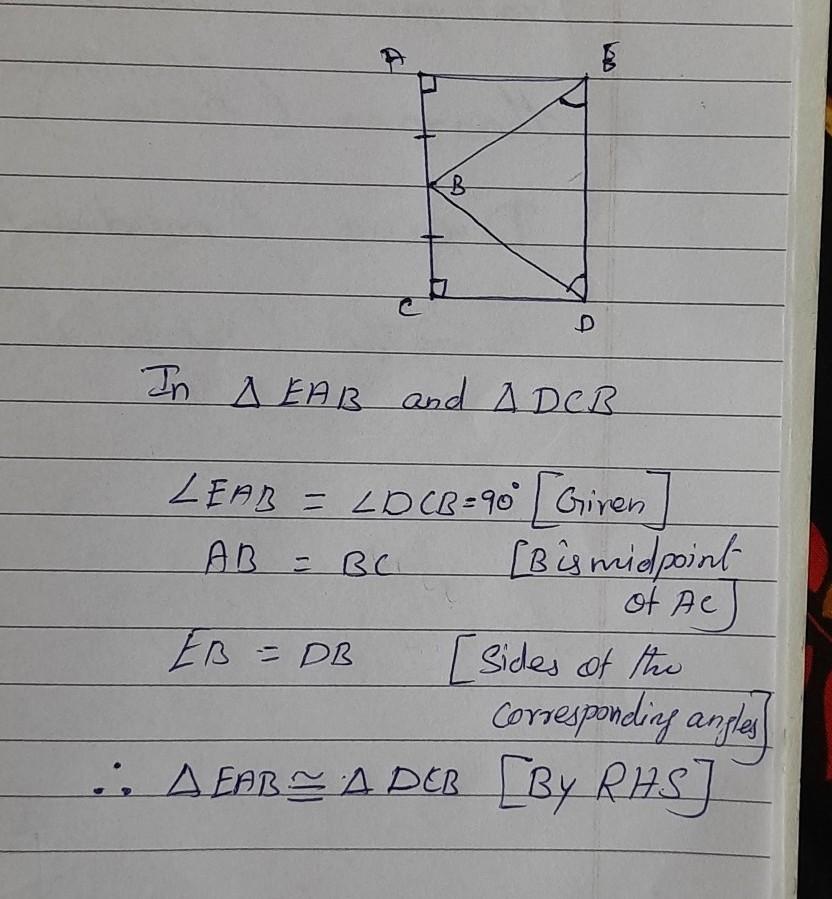 A E
B
C
D
In Δ EAB and Δ DCB
∠EAB = ∠DCB=90° [Given]
AB = BC [B is midpoint
of AC]
EB = DB [Sides of the
corresponding angles]
∴ Δ EAB ≅ Δ DCB [By RHS]